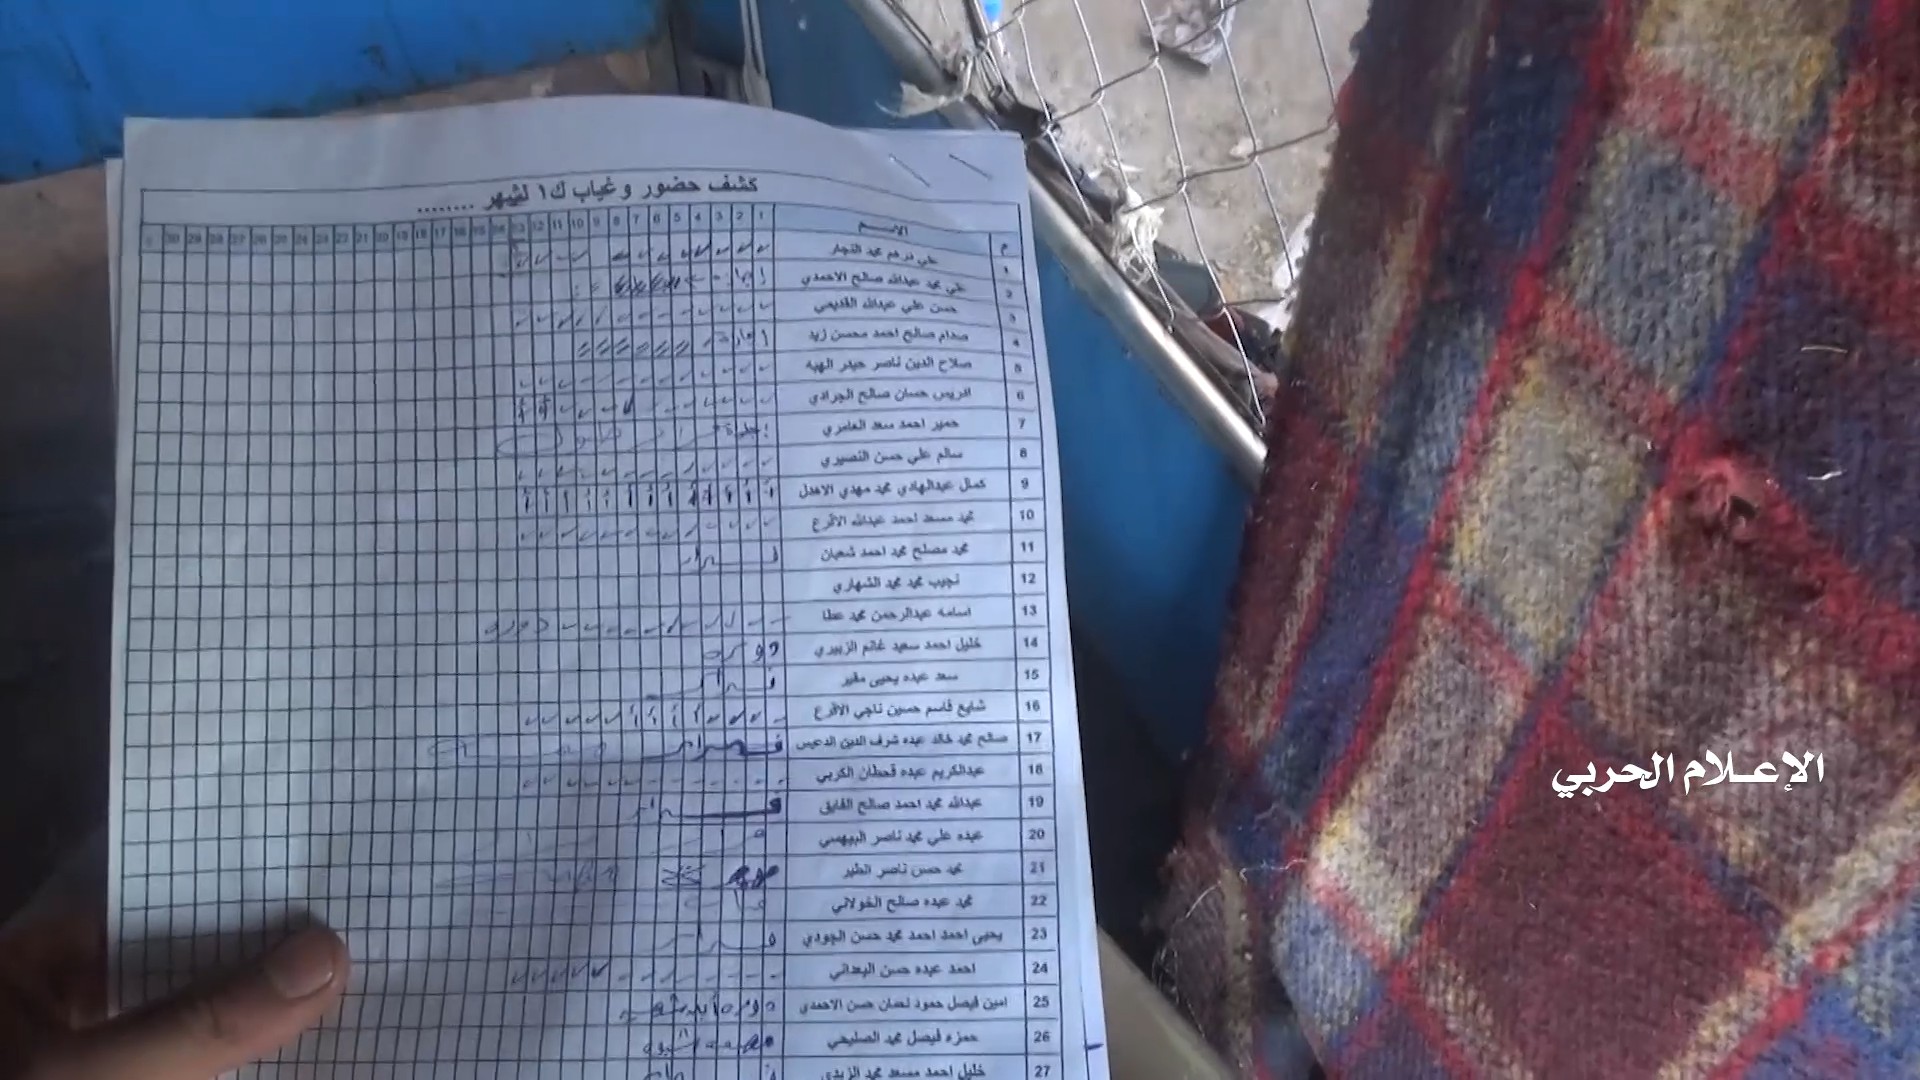 كشف حضور وغياب ك١ لشهر ........
م الاسم 1 2 3 4 5 6 7 8 9 10 11 12 13 14 15 16 17 18 19 20 21 22 23 24 25 26 27 28 29 30
1 علي درهم محمد النجار
2 علي محمد عبدالله صالح الاحمدي
3 حسن علي عبدالله القديمي
4 صدام صالح احمد محسن زيد
5 صلاح الدين ناصر حيدر الهبه
6 ادريس حسان صالح الجرادي
7 حمير احمد سعد العامري
8 سالم علي حسن النصيري
9 كمال عبدالهادي محمد مهدي الاهدل
10 محمد مسعد احمد عبدالله الاقرع
11 محمد مصلح محمد احمد شعبان
12 نجيب محمد محمد الشهاري
13 اسامه عبدالرحمن محمد عطا دوره
14 خليل احمد سعيد غانم الزبيري دوره
15 سعد عبده يحيى مقبر
16 شايع قاسم حسين ناجي الاقرع
17 صالح محمد خالد عبده شرف الدين الدعيس
18 عبدالكريم عبده قحطان الكربي
19 عبدالله محمد احمد صالح الفايق
20 عبده علي محمد ناصر البيهسي
21 محمد حسن ناصر الطير
22 محمد عبده صالح الخولاني
23 يحيى احمد احمد محمد حسن الجودي
24 احمد عبده حسن البعداني
25 امين فيصل حمود نعمان حسن الاحمدي
26 حمزه فيصل محمد الصليحي
27 خليل احمد مسعد محمد الزيدي
الإعلام الحربي